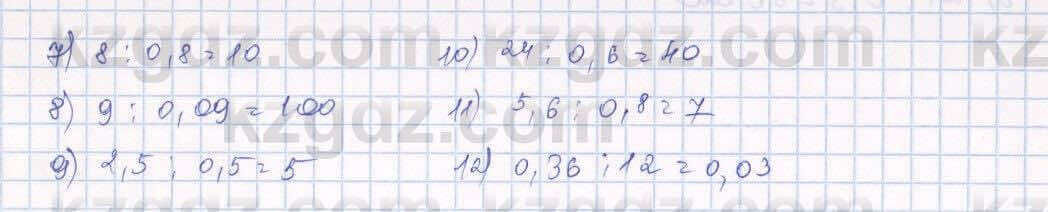 7) 8 : 0,8 = 10
8) 9 : 0,09 = 100
9) 2,5 : 0,5 = 5
10) 24 : 0,6 = 40
11) 5,6 : 0,8 = 7
12) 0,36 : 12 = 0,03
kzgdz.com
kzgdz.com